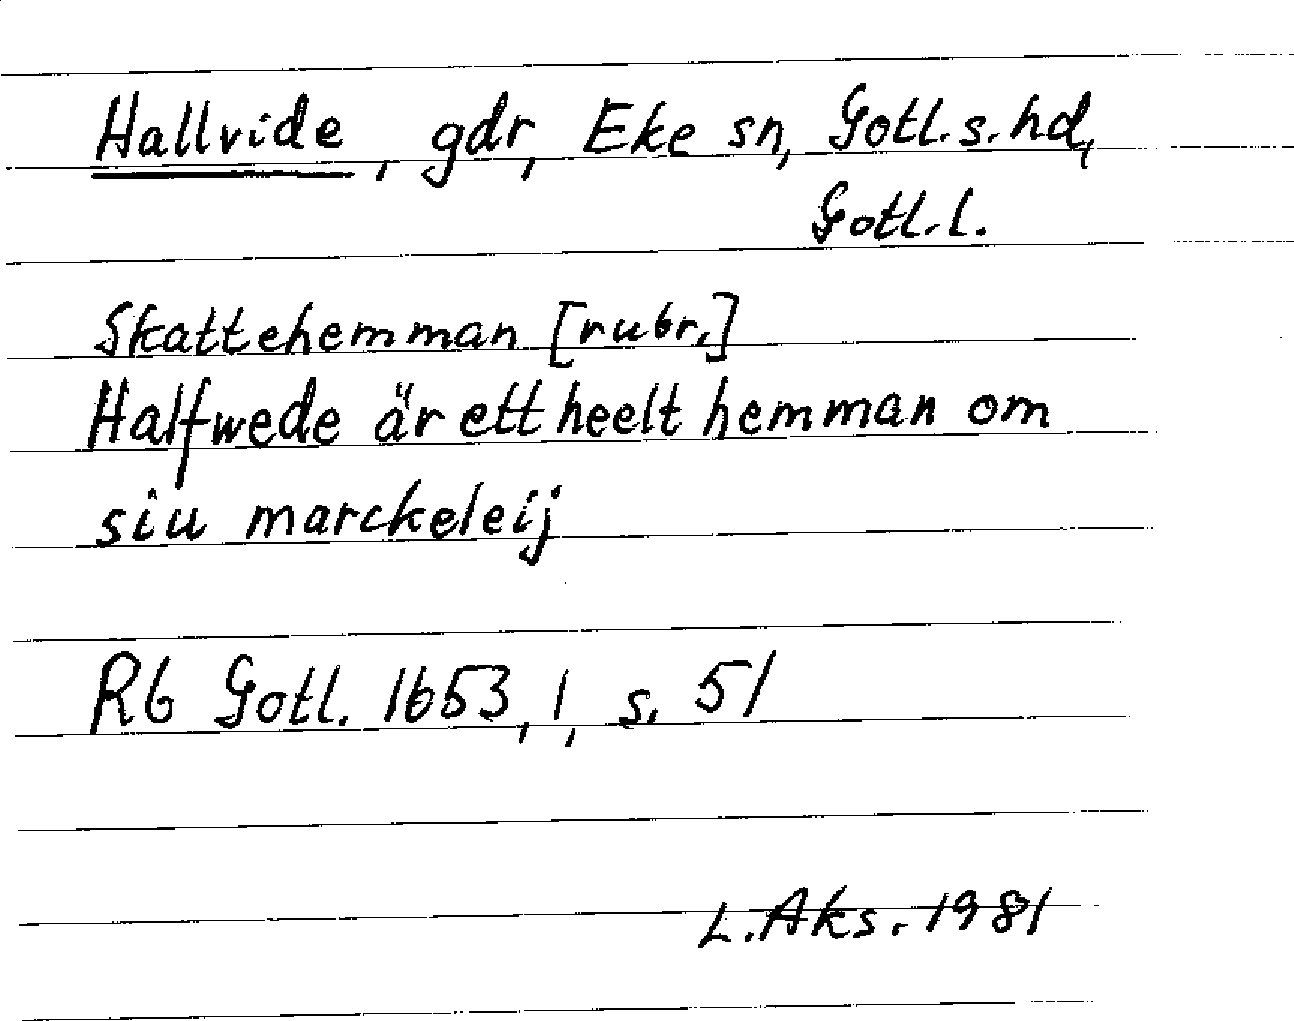 Hallvide, gdr, Eke sn, Gotl. s. hd,
Gotl. l.
Skattehemman [rubr.]
Halfwede är ett heelt hemman om
siu marckeleij
Rb Gotl. 1653, 1, s. 51
L. Aks. 1981